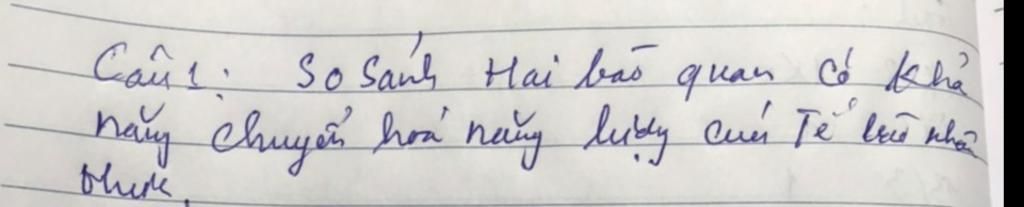 Câu 1: So sánh Hai bào quan có khả
năng chuyển hoá năng lượng của Tế bào nhân
thực.